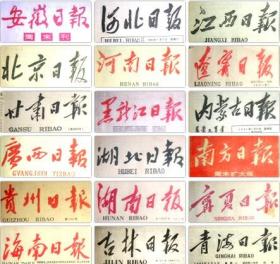 安徽日报
周末刊
河北日报
HEBEI RIBAO
江西日报
JIANGXI RIBAO
北京日报
河南日报
HENAN RIBAO
辽宁日报
LIAONING RIBAO
甘肃日报
GANSU RIBAO
黑龙江日报
内蒙古日报
廣西日报
GUANGXI RIBAO
湖北日报
HUBEI RIBAO
南方日报
周末扩大版
贵州日报
GUIZHOU RIBAO
湖南日报
HUNAN RIBAO
宁夏日报
NINGXIA RIBAO
海南日报
HAINAN RIBAO
吉林日报
JILIN RIBAO
青海日报
QINGHAI RIBAO